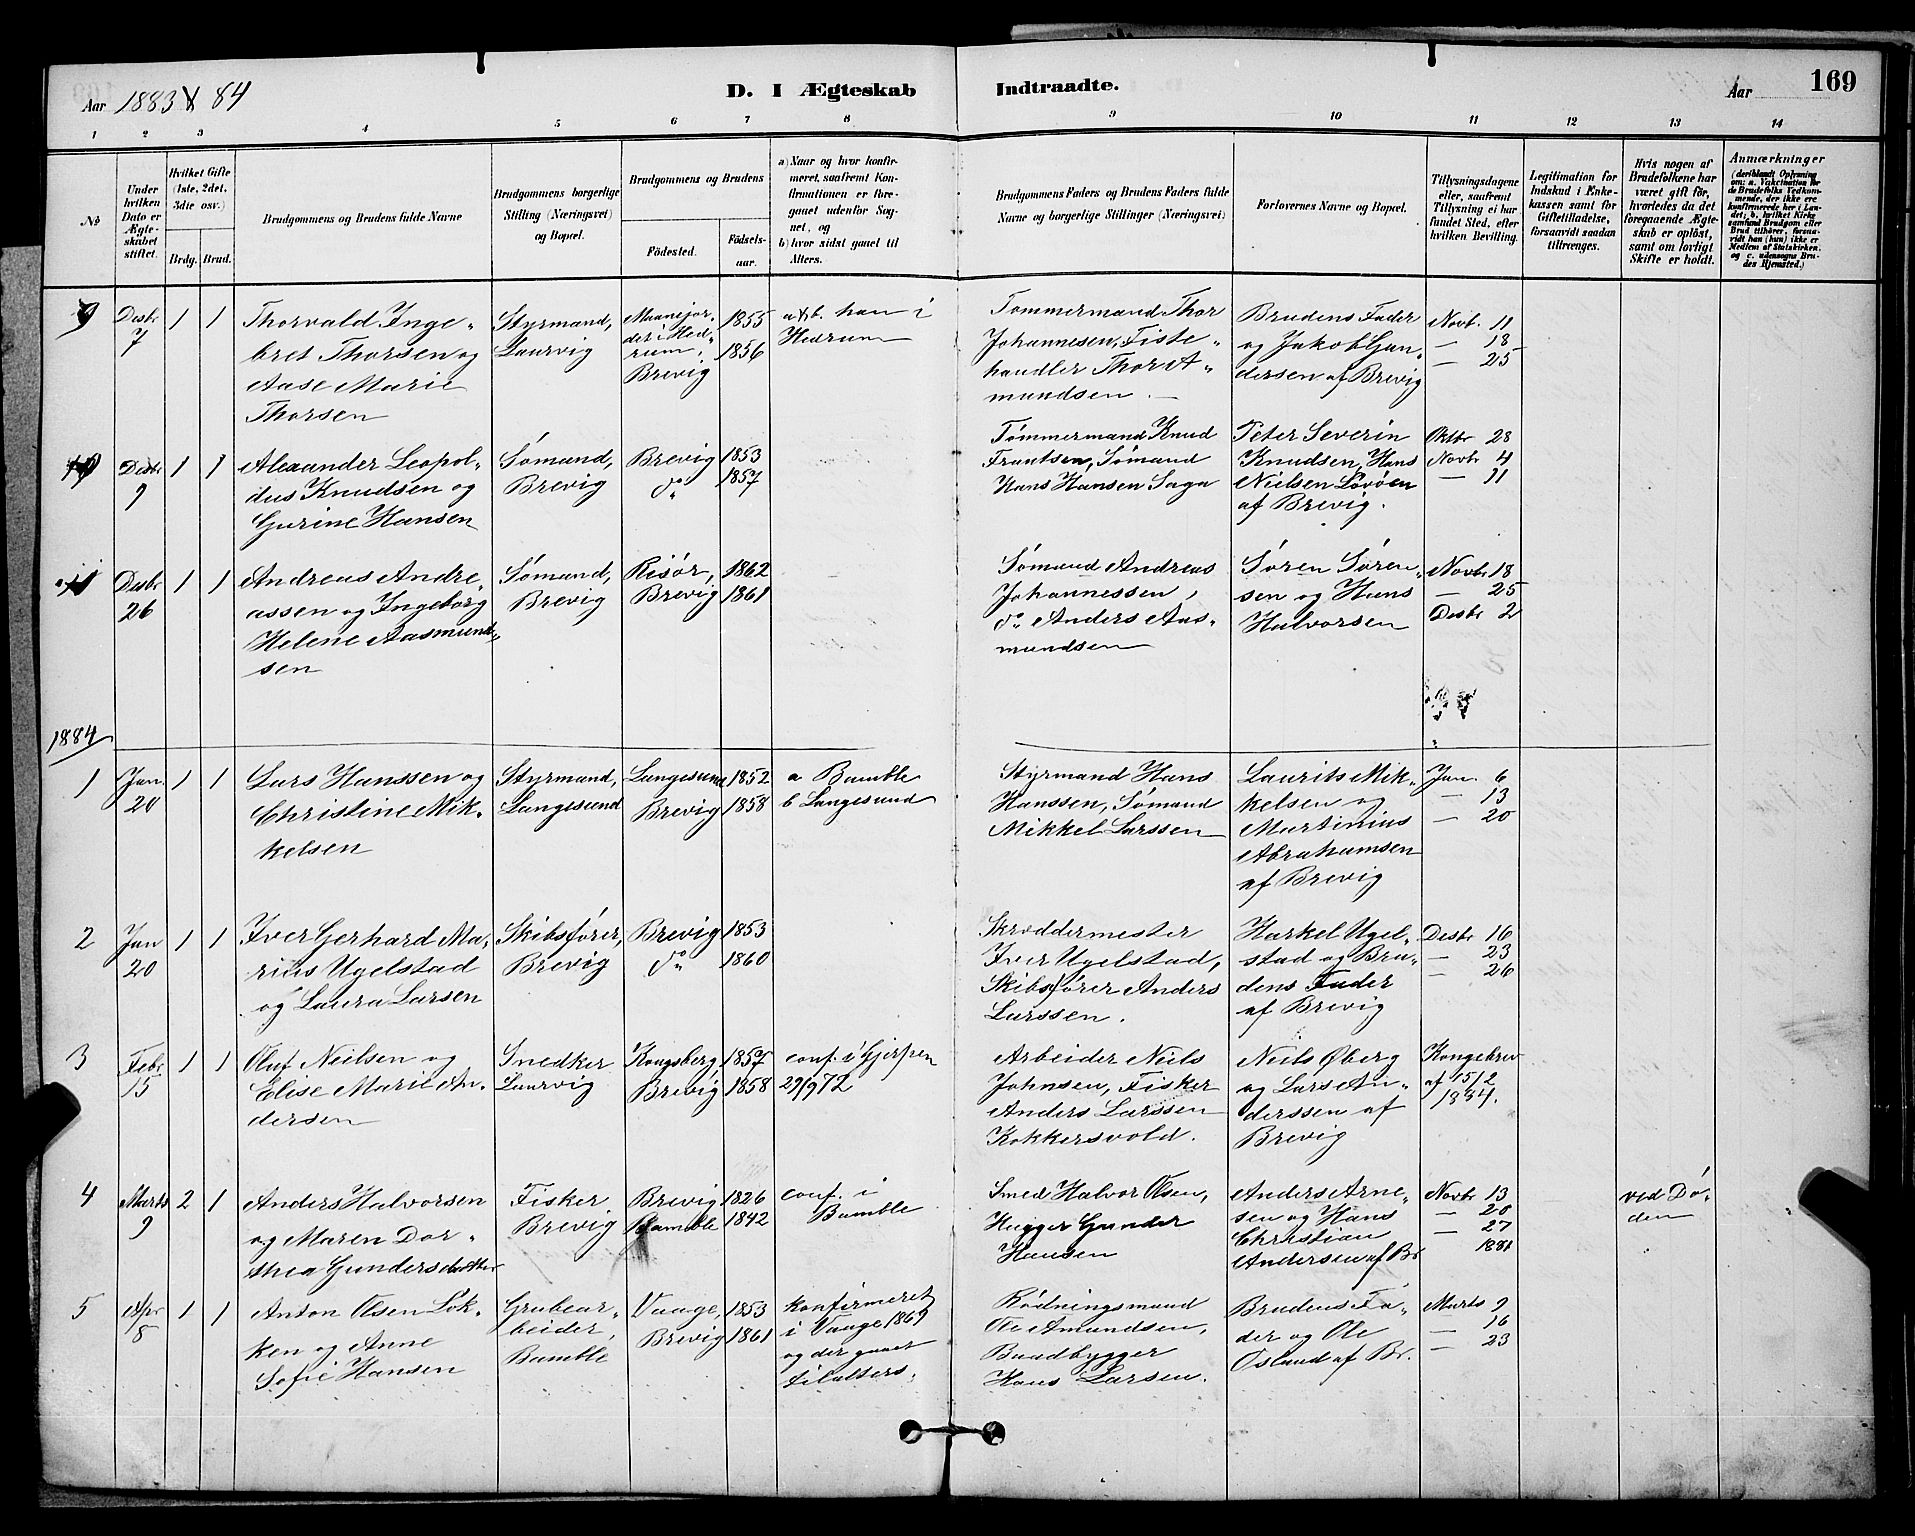 Aar 1883 & 84
D. I Ægteskab Indtraadte.
Aar
169
1 2 3 4 5 6 7 8 9 10 11 12 13 14
No
Under hvilken Dato er Ægteskabet stiftet.
Hvilket Gifte (1ste, 2det, 3die osv.)
Brdg. Brud.
Brudgommens og Brudens fulde Navne
Brudgommens borgerlige Stilling (Næringsvei) og Bopæl.
Brudgommens og Brudens
Fødested.
Fødsels-aar.
a) Naar og hvor konfirmeret, saafremt Konfirmationen er foregaaet udenfor Sognet, og
b) hvor sidst gaaet til Alters.
Brudgommens Faders og Brudens Faders fulde Navne og borgerlige Stillinger (Næringsvei)
Forlovernes Navne og Bopæl.
Tillysningsdagene eller, saafremt Tillysning ei har fundet Sted, efter hvilken Bevilling.
Legitimation for Indskud i Ænkekassen samt for Giftetilladelse, forsaavidt saadan tiltrænges.
Hvis nogen af Brudefolkene har været gift før, hvorledes da det foregaaende Ægteskab er opløst, samt om lovligt Skifte er holdt.
Anmærkninger
(deriblandt Oplysning om: a. Vakcination for de Brudefolks Vedkommende, der ikke ere konfirmerede her i Landet; b. hvilket Kirkesamfund Brudgom eller Brud tilhører, forsaavidt han (hun) ikke er Medlem af Statskirken, og c. udensogns Brudes Hjemsted.)
9 Desbr 7 1 1
Thorvald Inge-
bret Thorsen og
Aase Marie
Thorsen
Styrmand,
Laurvig
der i Hed-
rum,
Brevig
1855
1856
a & b. han i
Hedrum
Tømmermand Thor
Johannesen, Fiske-
handler Thor A-
mundsen.
Brudens Fader
og Jakob Gun-
dersen af Brevig
Novb. 11
— 18
— 25
10 Desbr 9 1 1
Alexander Leopol-
dus Knudsen og
Gurine Hansen
Sømand,
Brevig
Brevig
do
1853
1857
Tømmermand Knud
Frantsen, Sømand
Hans Hansen Saga
Peter Severin
Knudsen, Hans
Nielsen Løvøen
af Brevig.
Oktbr 28
Novbr 4
— 11
11 Desbr 26 1 1
Andreas Andre-
assen og Ingeborg
Helene Aasmund-
sen
Sømand,
Brevig
Risør,
Brevig
1862
1861
Sømand Andreas
Johannessen,
do Anders Aas-
mundsen
Søren Søren-
sen og Hans
Halvorsen
Novbr 18
— 25
Desbr 2
1884
1 Jan. 20 1 1
Lars Hanssen og
Christine Mik-
kelsen
Styrmand,
Langesund
Langesund
Brevig
1852
1858
a Bamble
b Langesund
Styrmand Hans
Hanssen, Sømand
Mikkel Larssen
Laurits Mik-
kelsen og
Martinius
Abrahamsen
af Brevig
Jan. 6
— 13
— 20
2 Jan 20 1 1
Iver Gerhard Ma-
rius Ugelstad
og Laura Larsen
Skibsfører,
Brevig
Brevig
do
1853
1860
Skræddermester
Iver Ugelstad,
Skibsfører Anders
Larssen.
Harkel Ugel-
stad og Bru-
dens Fader
af Brevig
Desbr 16
— 23
— 26
3 Febr 15 1 1
Oluf Neilsen og
Elise Marie An-
dersen
Snedker
Laurvig
Kongsberg,
Brevig
1857
1858
conf. i Gjerpen
29/9 72
Arbeider Niels
Johnsen, Fisker
Anders Larssen
Kokkersvold.
Neils Øberg
og Lars An-
derssen af
Brevig
Kongebrev
af 15/2
1884.
4 Marts 9 2 1
Anders Halvorsen
og Maren Dor-
thea Gundersdatter
Fisker
Brevig
Brevig
Bamble
1826
1842
conf. i
Bamble
Smed Halvor Olsen,
Hugger Gunder
Hansen
Anders Arne-
sen og Hans
Christian
Andersen af Br.
Novbr 13
— 20
— 27
1881
ved Dø-
den
5 Apr 8 1 1
Anton Olsen Løk-
ken og Anne
Sofie Hansen
Grubear-
beider,
Bamble
Vaage,
Brevig
1853
1861
konfirmeret
i Vaage 1869
og der gaaet
til alters.
Rødningsmand
Ole Amundsen,
Baadbygger
Hans Larsen.
Brudens Fa-
der og Ole
Øslund af Br.
Marts 9
— 16
— 23